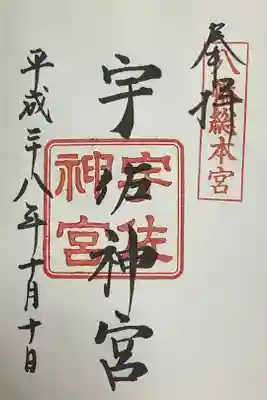 奉拝
八幡総本宮
宇佐神宮
宇佐
神宮
平成二十八年十月十日